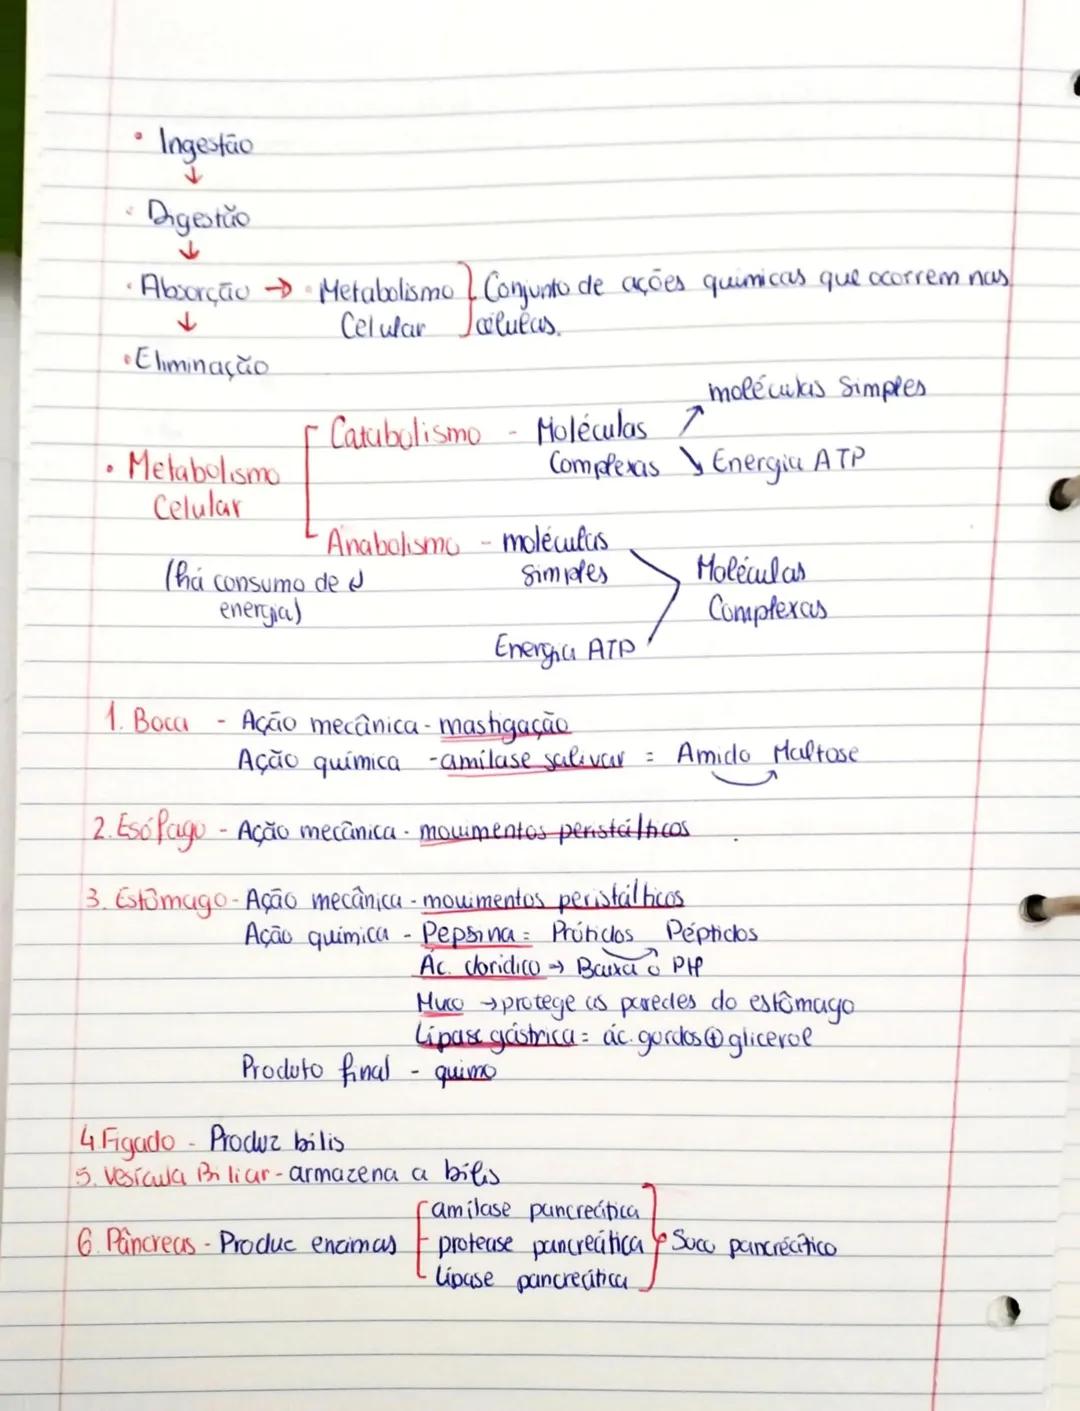 • Ingestão
↓
• Digestão
↓
• Absorção → • Metabolismo Celular } Conjunto de ações quimicas que ocorrem nas células.
↓
• Eliminação
• Metabolismo Celular
Catabolismo - Moléculas Complexas
↗ moléculas Simples
↘ Energia ATP
Anabolismo - moléculas simples
Energia ATP
Moléculas Complexas
(há consumo de energia)
1. Boca - Ação mecânica - mastigação
Ação química - amílase salivar = Amido Maltose
2. Esófago - Ação mecânica - movimentos peristálticos
3. Estômago - Ação mecânica - movimentos peristálticos
Ação química - Pepsina = Prótidos Péptidos
Ác. cloridico → Baixa o PH
Muco → protege as paredes do estômago
Lipase gástrica = ác. gordos ⊕ glicerol
Produto final - quimo
4. Figado - Produz bilis
5. Vesícula Biliar - armazena a bílis
6. Pâncreas - Produc enzimas
amílase pancreática
protease pancreática
lipase pancreática
} Suco pancreático